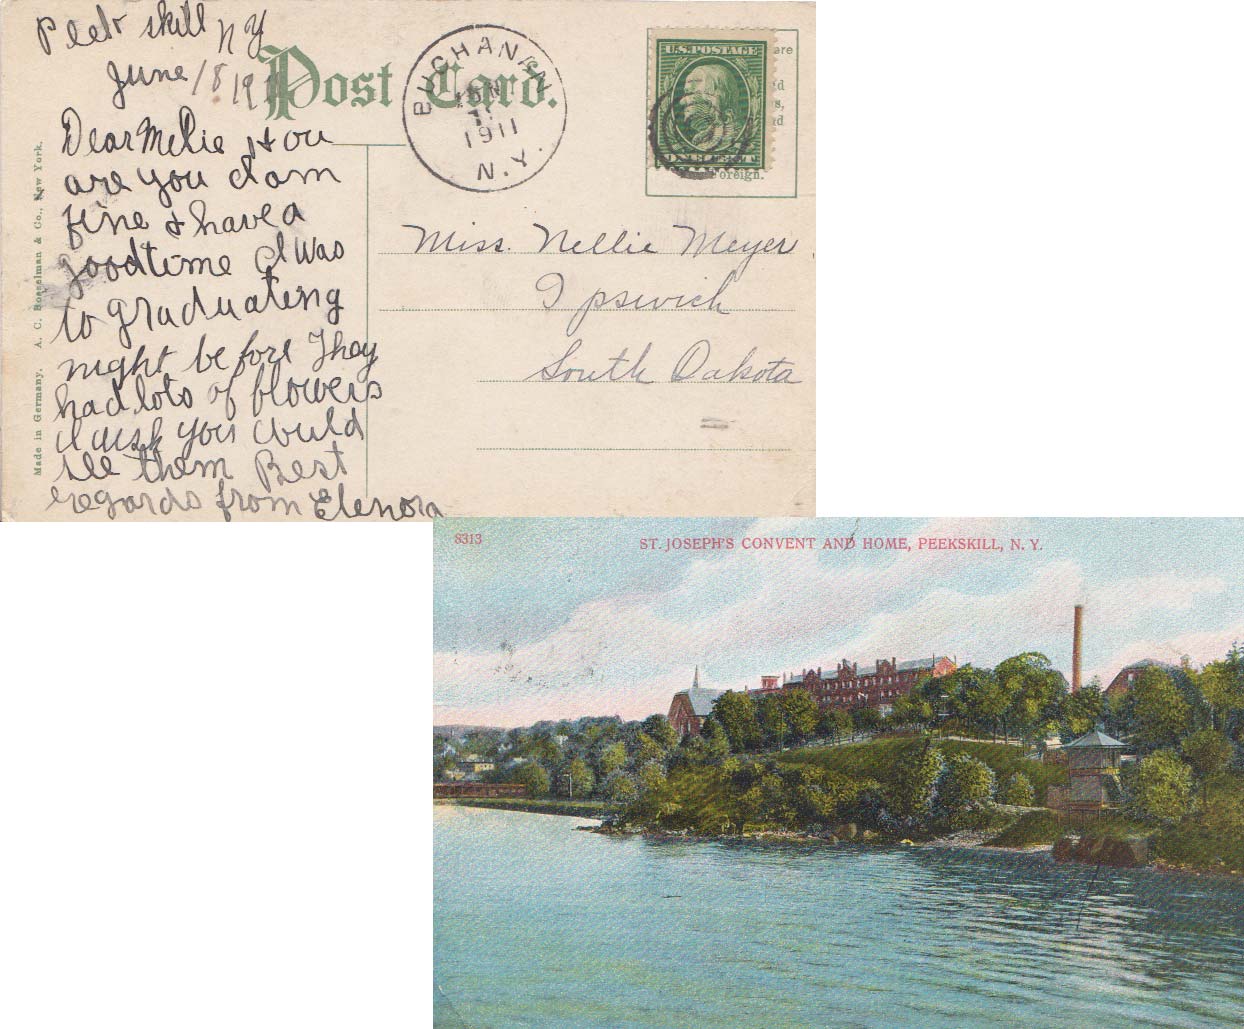 Peekskill NY
June 18 191
Dear Nellie How
are you I am
fine & have a
good time I was
to graduating
night before They
had lots of flowers
I wish you could
see them Best
regards from Elenora
Post Card.
BUCHANAN
JUN
1911
N.Y.
U.S. POSTAGE
ONE CENT
Foreign.
Miss. Nellie Meyer
Ipswich
South Dakota
Made in Germany. A. C. Bosselman & Co., New York.
8313
ST. JOSEPH'S CONVENT AND HOME, PEEKSKILL, N. Y.